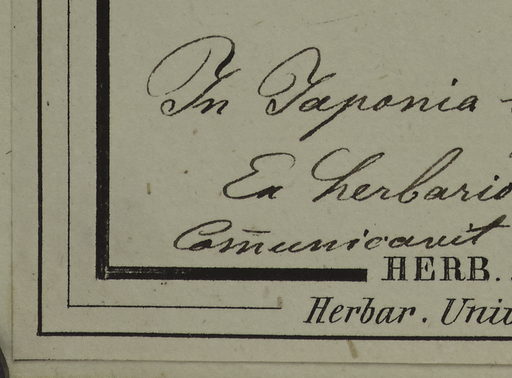 In Japonia
Ex herbario
Com̅unicavit
HERB.
Herbar. Univ